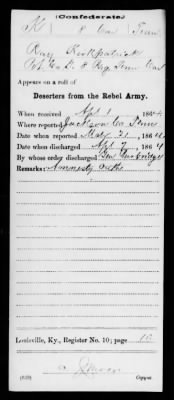 (Confederate.)
K 8 Cav Tenn
Kirkpatrick
Pvt Co. 8 Reg. Tenn Cav
Appears on a roll of
Deserters from the Rebel Army.
When received Apl 1 1864
Where reported Jackson Co Tenn
Date when reported Mch 21, 1864
Date when discharged Apl 7, 1864
By whose order discharged Gen
Remarks: Amnesty Oath
Louisville, Ky., Register No. 10; page 10
(639) Copyist.